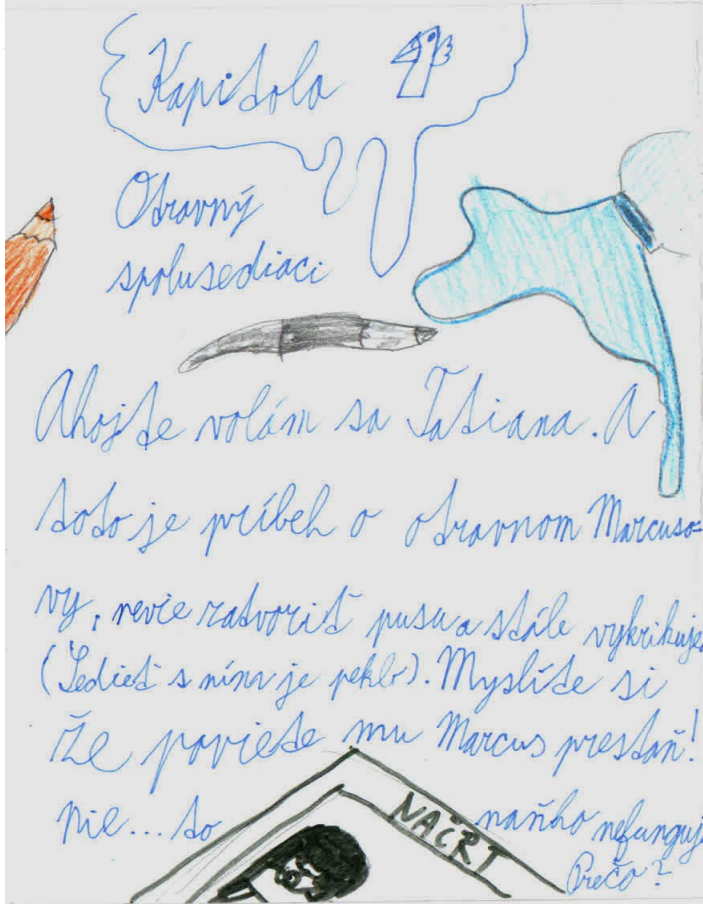 Kapitola 1
Otravný
spolusediaci
Ahojte volám sa Tatiana. A
toto je príbeh o otravnom Marcuso-
vy, nevie zatvoriť pusu a stále vykrikuje
(Sedieť s ním je peklo). Myslíte si
že poviete mu Marcus prestaň!
nie... to naňho nefunguje
Prečo?
NAČRT